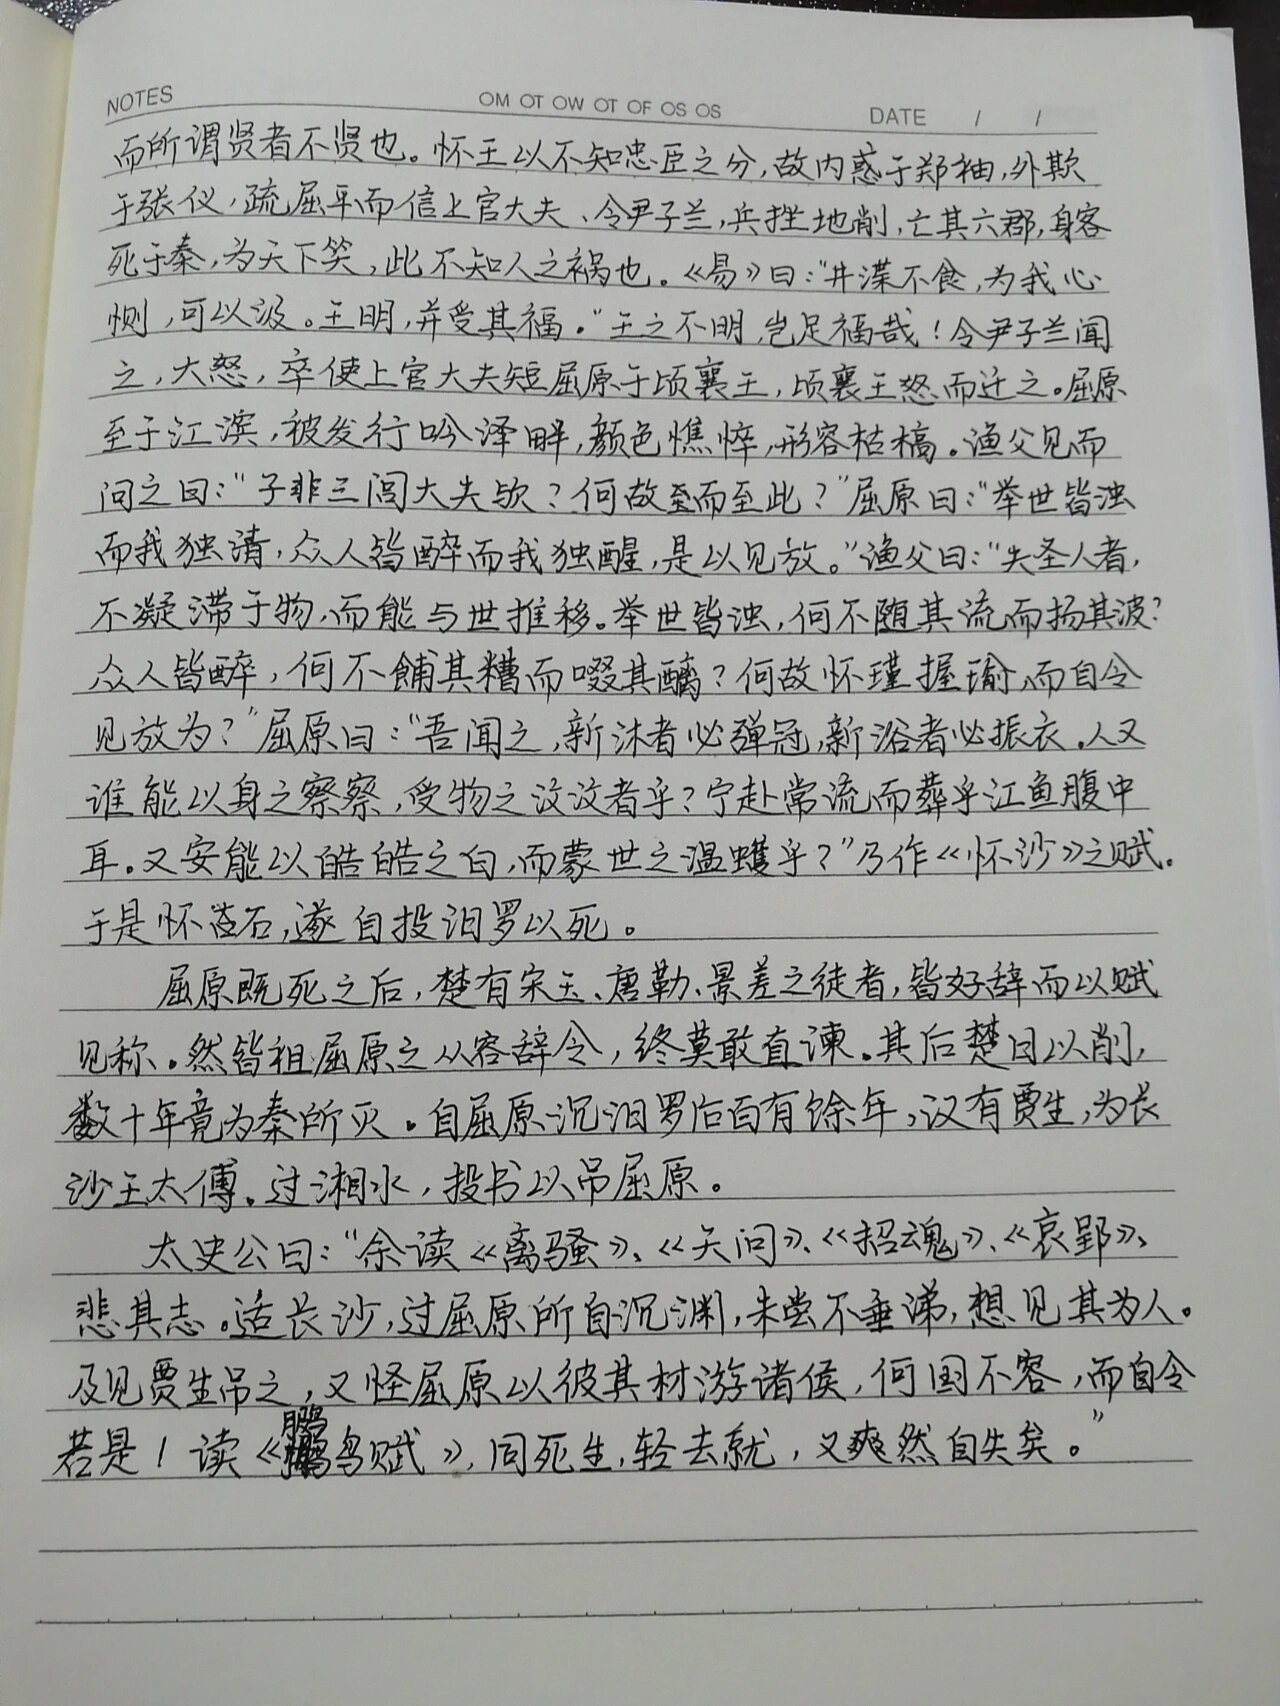 NOTES OM OT OW OT OF OS OS DATE / /
而所谓贤者不贤也。怀王以不知忠臣之分,故内惑于郑袖,外欺
于张仪,疏屈平而信上官大夫、令尹子兰,兵挫地削,亡其六郡,身客
死于秦,为天下笑,此不知人之祸也。《易》曰:“井渫不食,为我心
恻,可以汲。王明,并受其福。”王之不明,岂足福哉!令尹子兰闻
之,大怒,卒使上官大夫短屈原于顷襄王,顷襄王怒而迁之。屈原
至于江滨,被发行吟泽畔,颜色憔悴,形容枯槁。渔父见而
问之曰:“子非三闾大夫欤?何故至而至此?”屈原曰:“举世皆浊
而我独清,众人皆醉而我独醒,是以见放。”渔父曰:“夫圣人者,
不凝滞于物,而能与世推移。举世皆浊,何不随其流而扬其波?
众人皆醉,何不餔其糟而啜其醨?何故怀瑾握瑜,而自令
见放为?”屈原曰:“吾闻之,新沐者必弹冠,新浴者必振衣。人又
谁能以身之察察,受物之汶汶者乎?宁赴常流而葬乎江鱼腹中
耳。又安能以皓皓之白,而蒙世之温蠖乎?”乃作《怀沙》之赋。
于是怀石,遂自投汨罗以死。
屈原既死之后,楚有宋玉、唐勒、景差之徒者,皆好辞而以赋
见称。然皆祖屈原之从容辞令,终莫敢直谏。其后楚日以削,
数十年竟为秦所灭。自屈原沉汨罗后百有馀年,汉有贾生,为长
沙王太傅。过湘水,投书以吊屈原。
太史公曰:“余读《离骚》、《天问》、《招魂》、《哀郢》、
悲其志。适长沙,过屈原所自沉渊,未尝不垂涕,想见其为人。
及见贾生吊之,又怪屈原以彼其材游诸侯,何国不容,而自令
若是!读《鵩鸟赋》,同死生,轻去就,又爽然自失矣。”